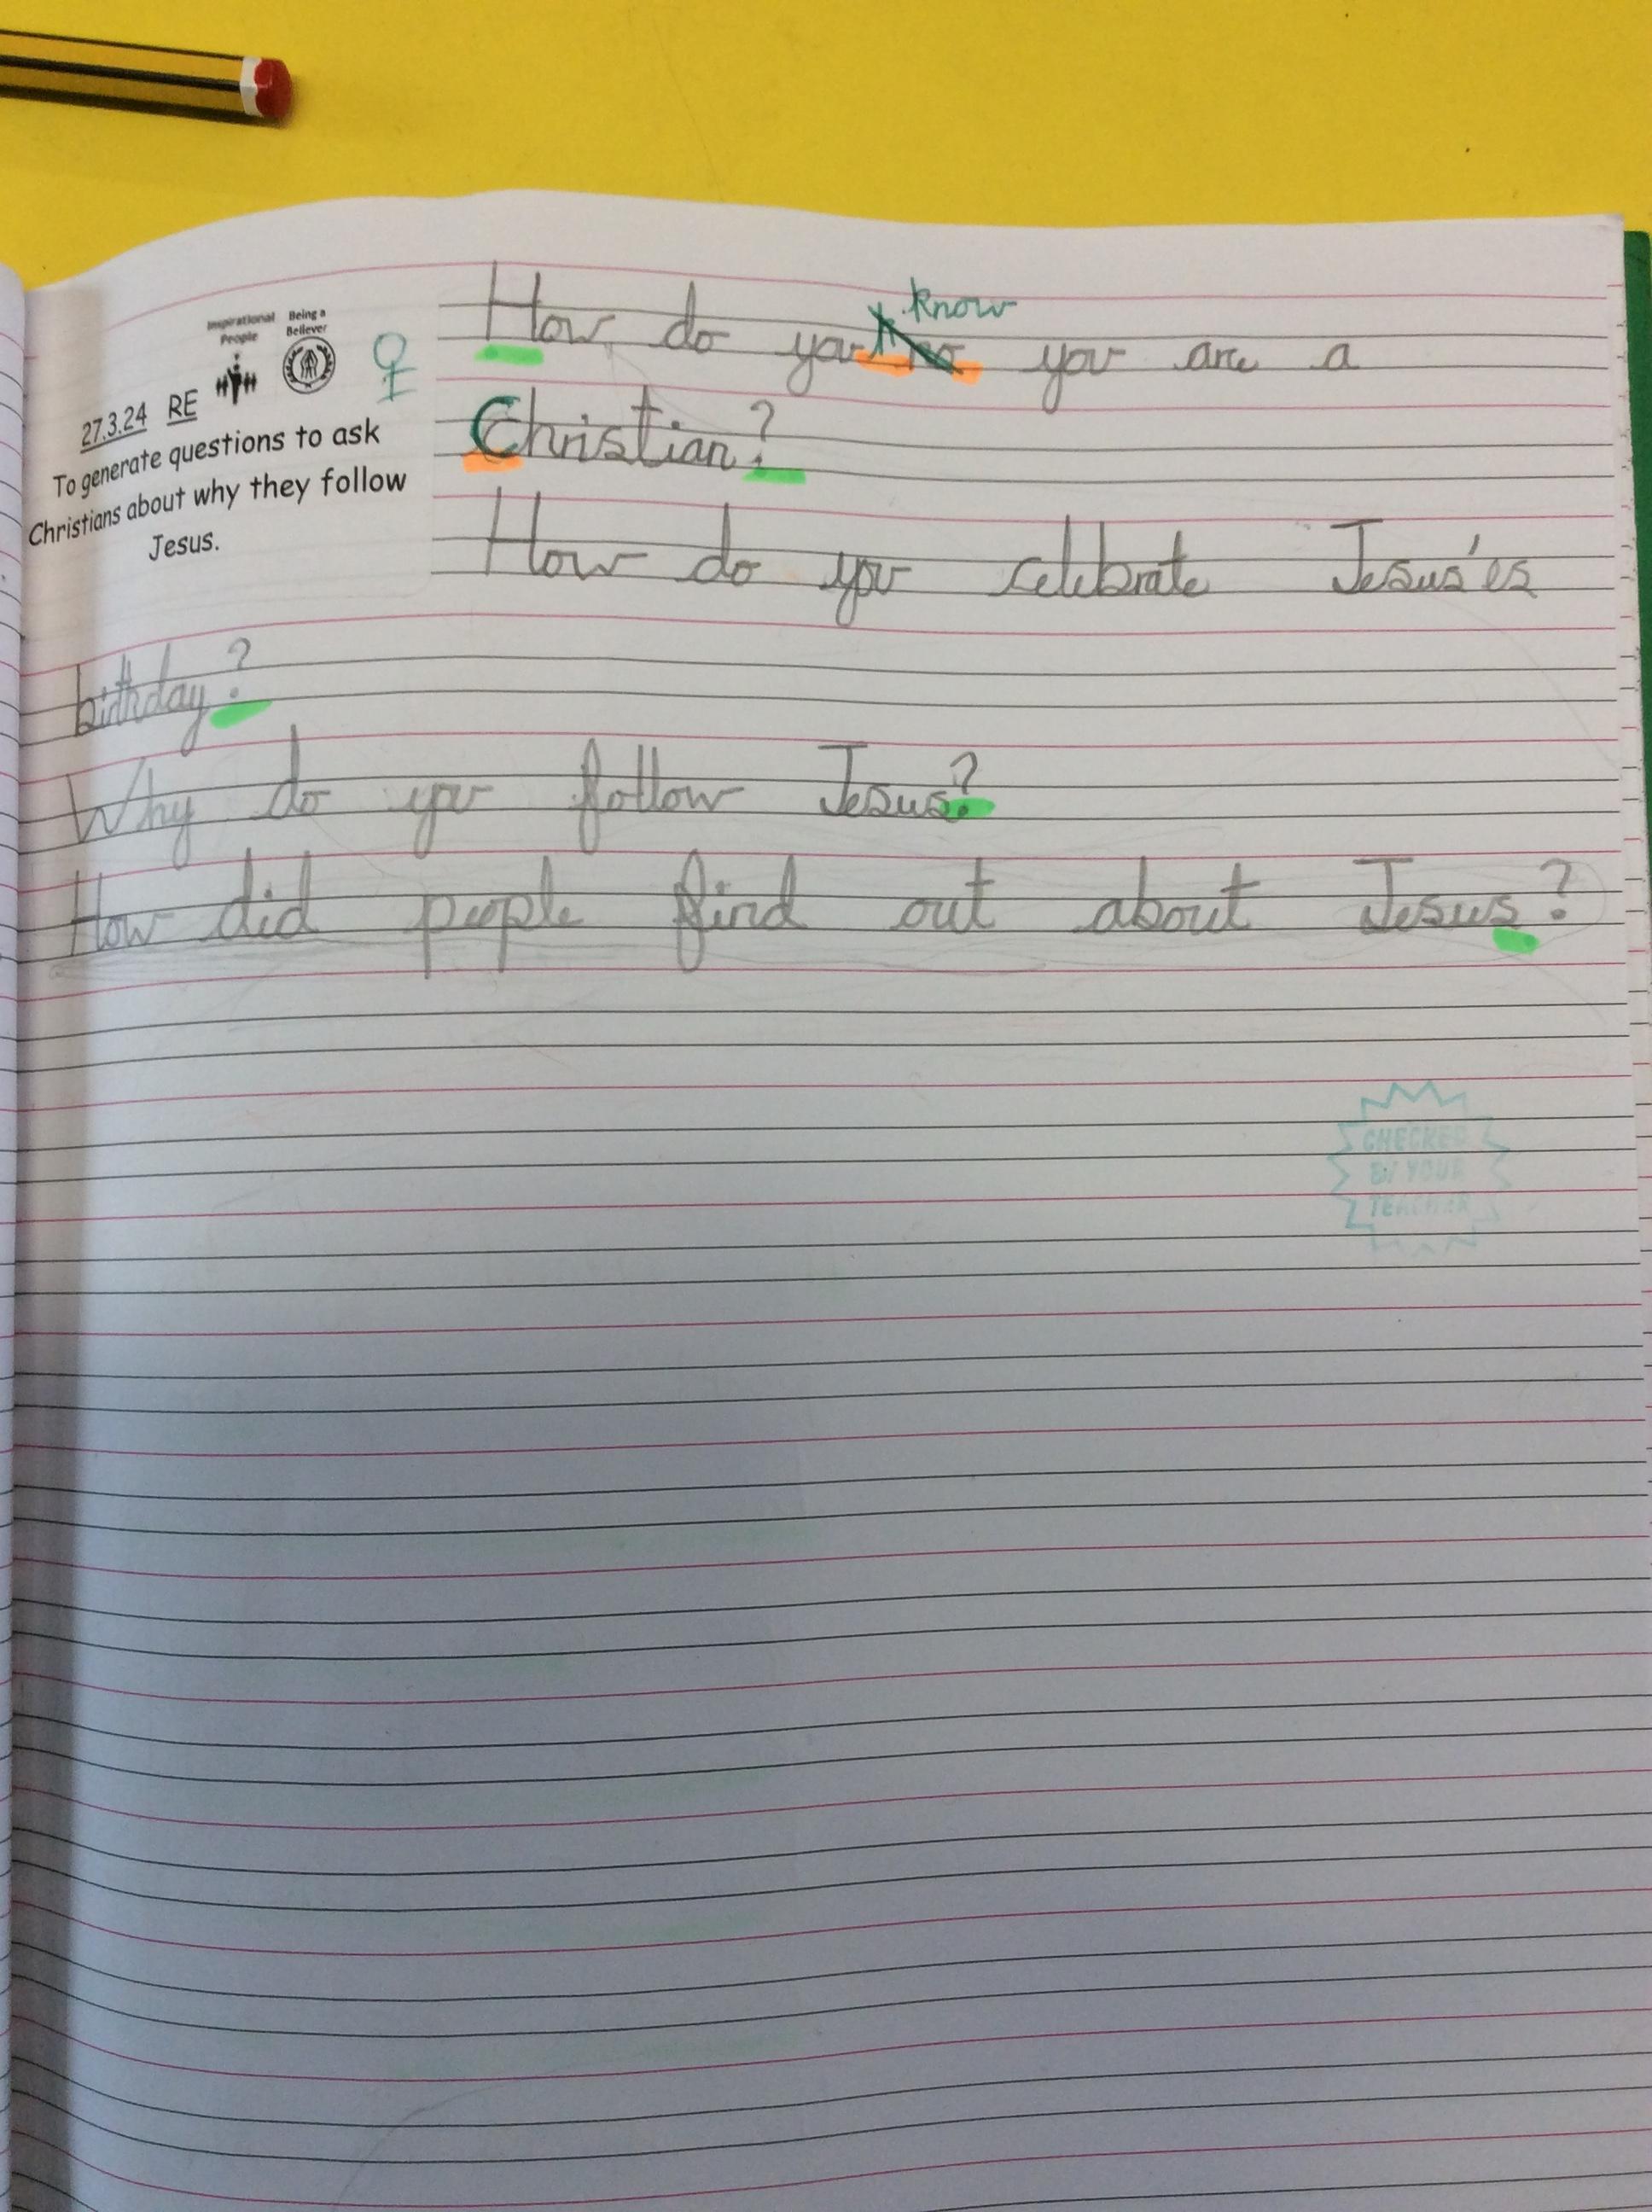 Inspirational People
Being a Believer
27.3.24 RE
To generate questions to ask
Christians about why they follow
Jesus.
know
How do you you are a
Christian?
How do you celebrate Jesus'es
birthday?
Why do you follow Jesus?
How did people find out about Jesus?
CHECKED
BY YOUR
TEACHER